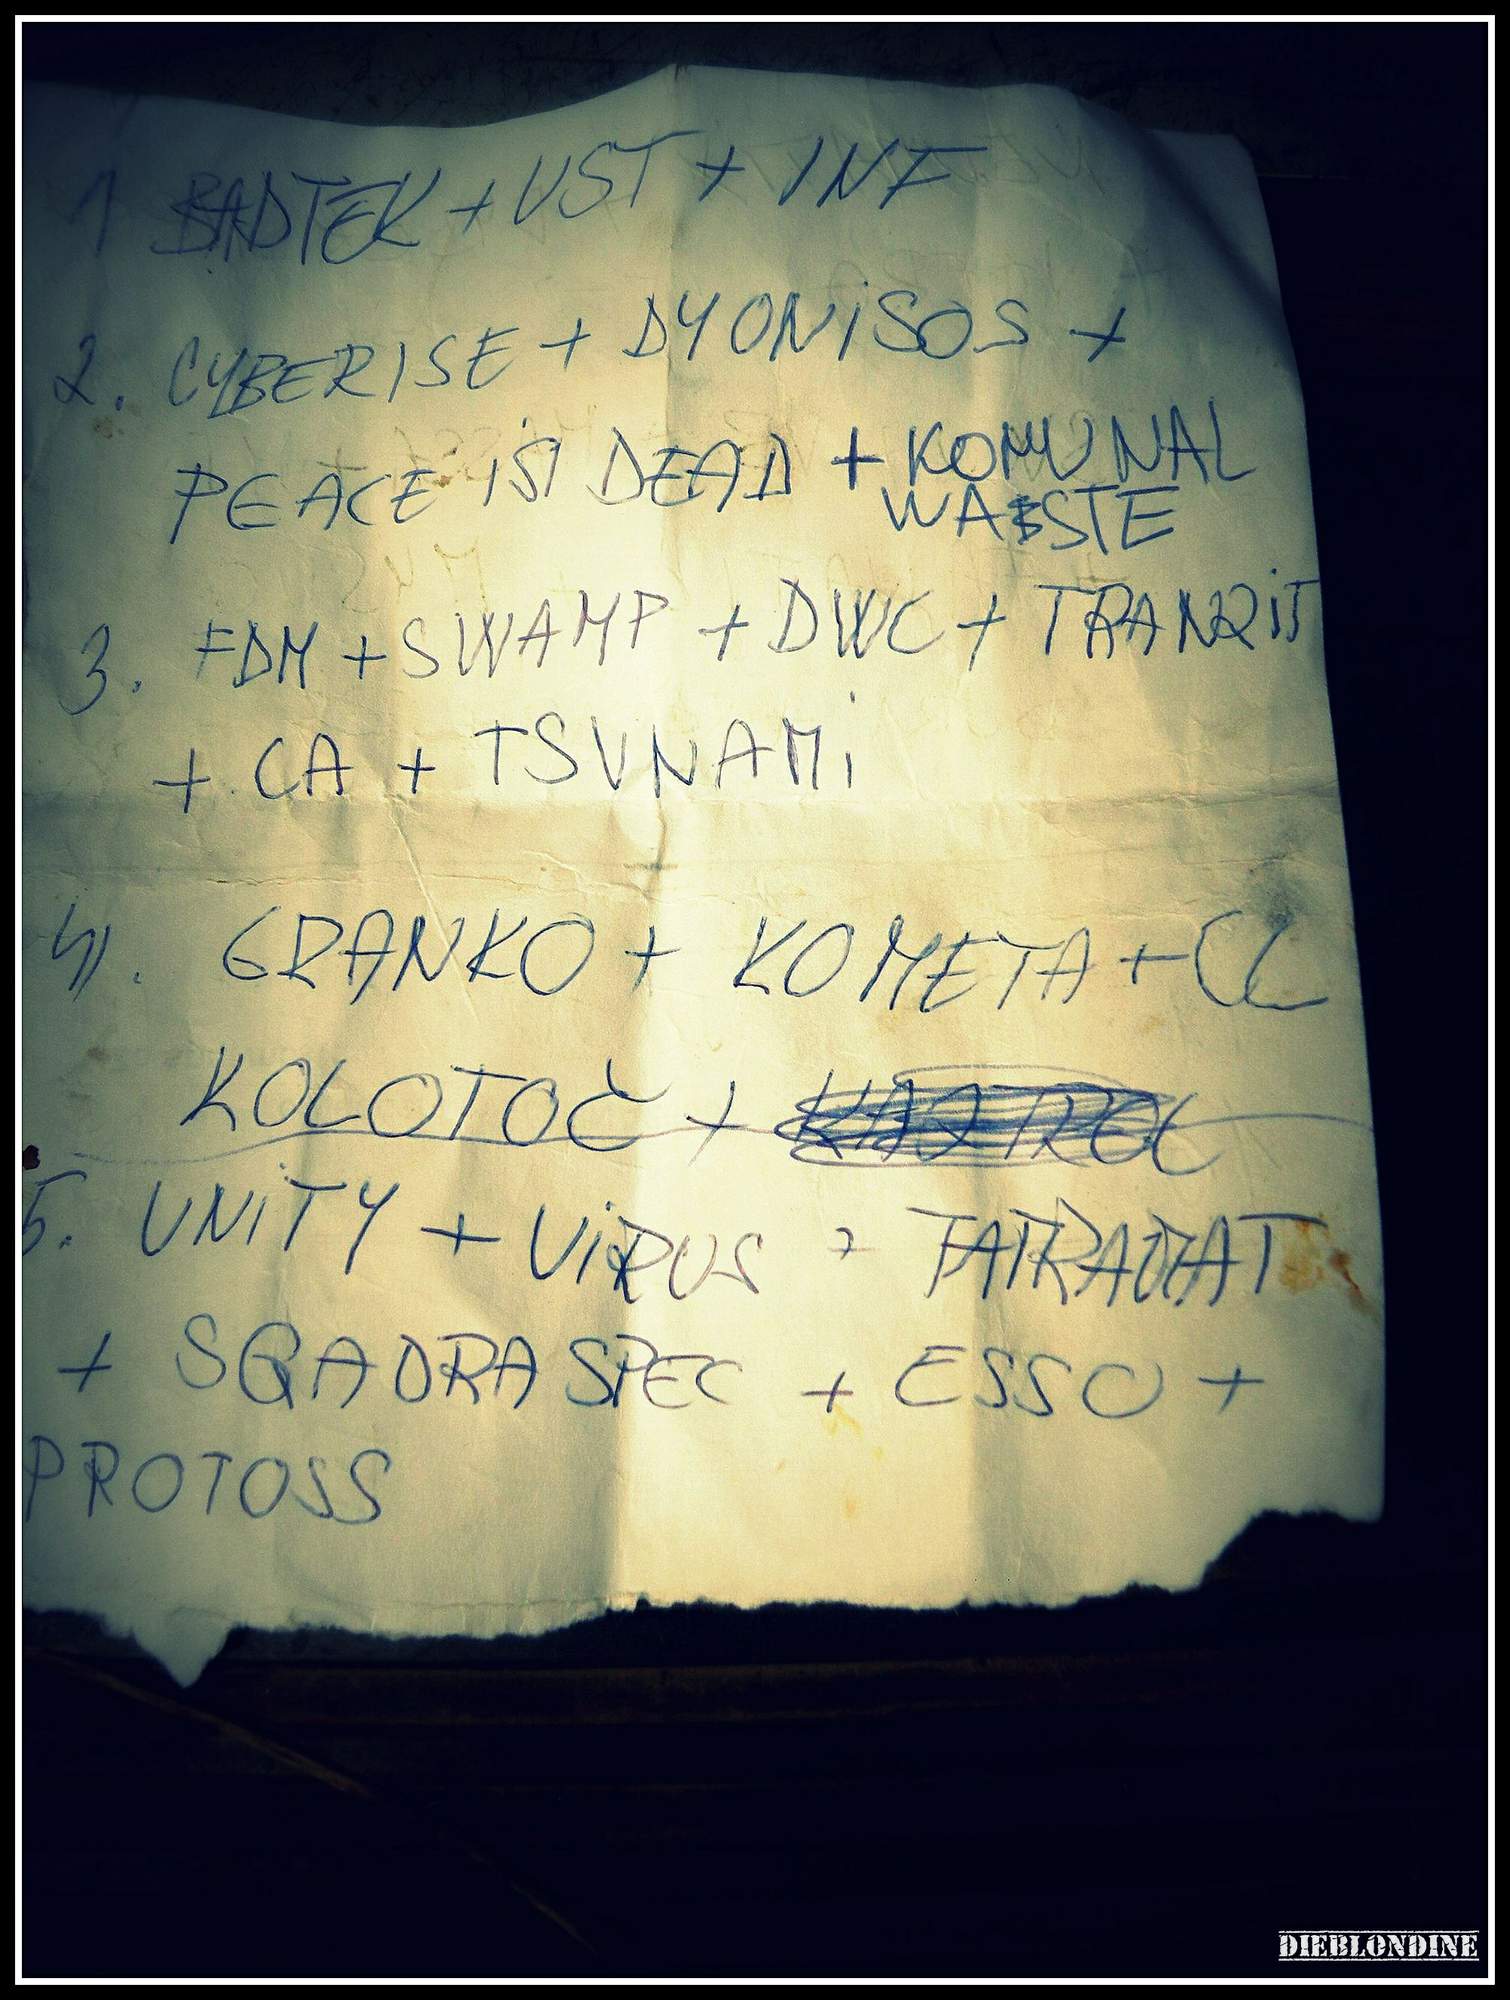 1 BADTEK + UST + INF
2. CYBERISE + DYONiSOS +
PEACE iS DEAD + KOMUNAL
WASTE
3. FDM + SWAMP + DWC + TRANZiT
+ CA + TSUNAMi
4. GRANKO + KOMETA + CL
KOLOTOČ +
5. UNiTY + ViRUS
+ SQADRA SPEC + ESSO +
PROTOSS
DIEBLONDINE